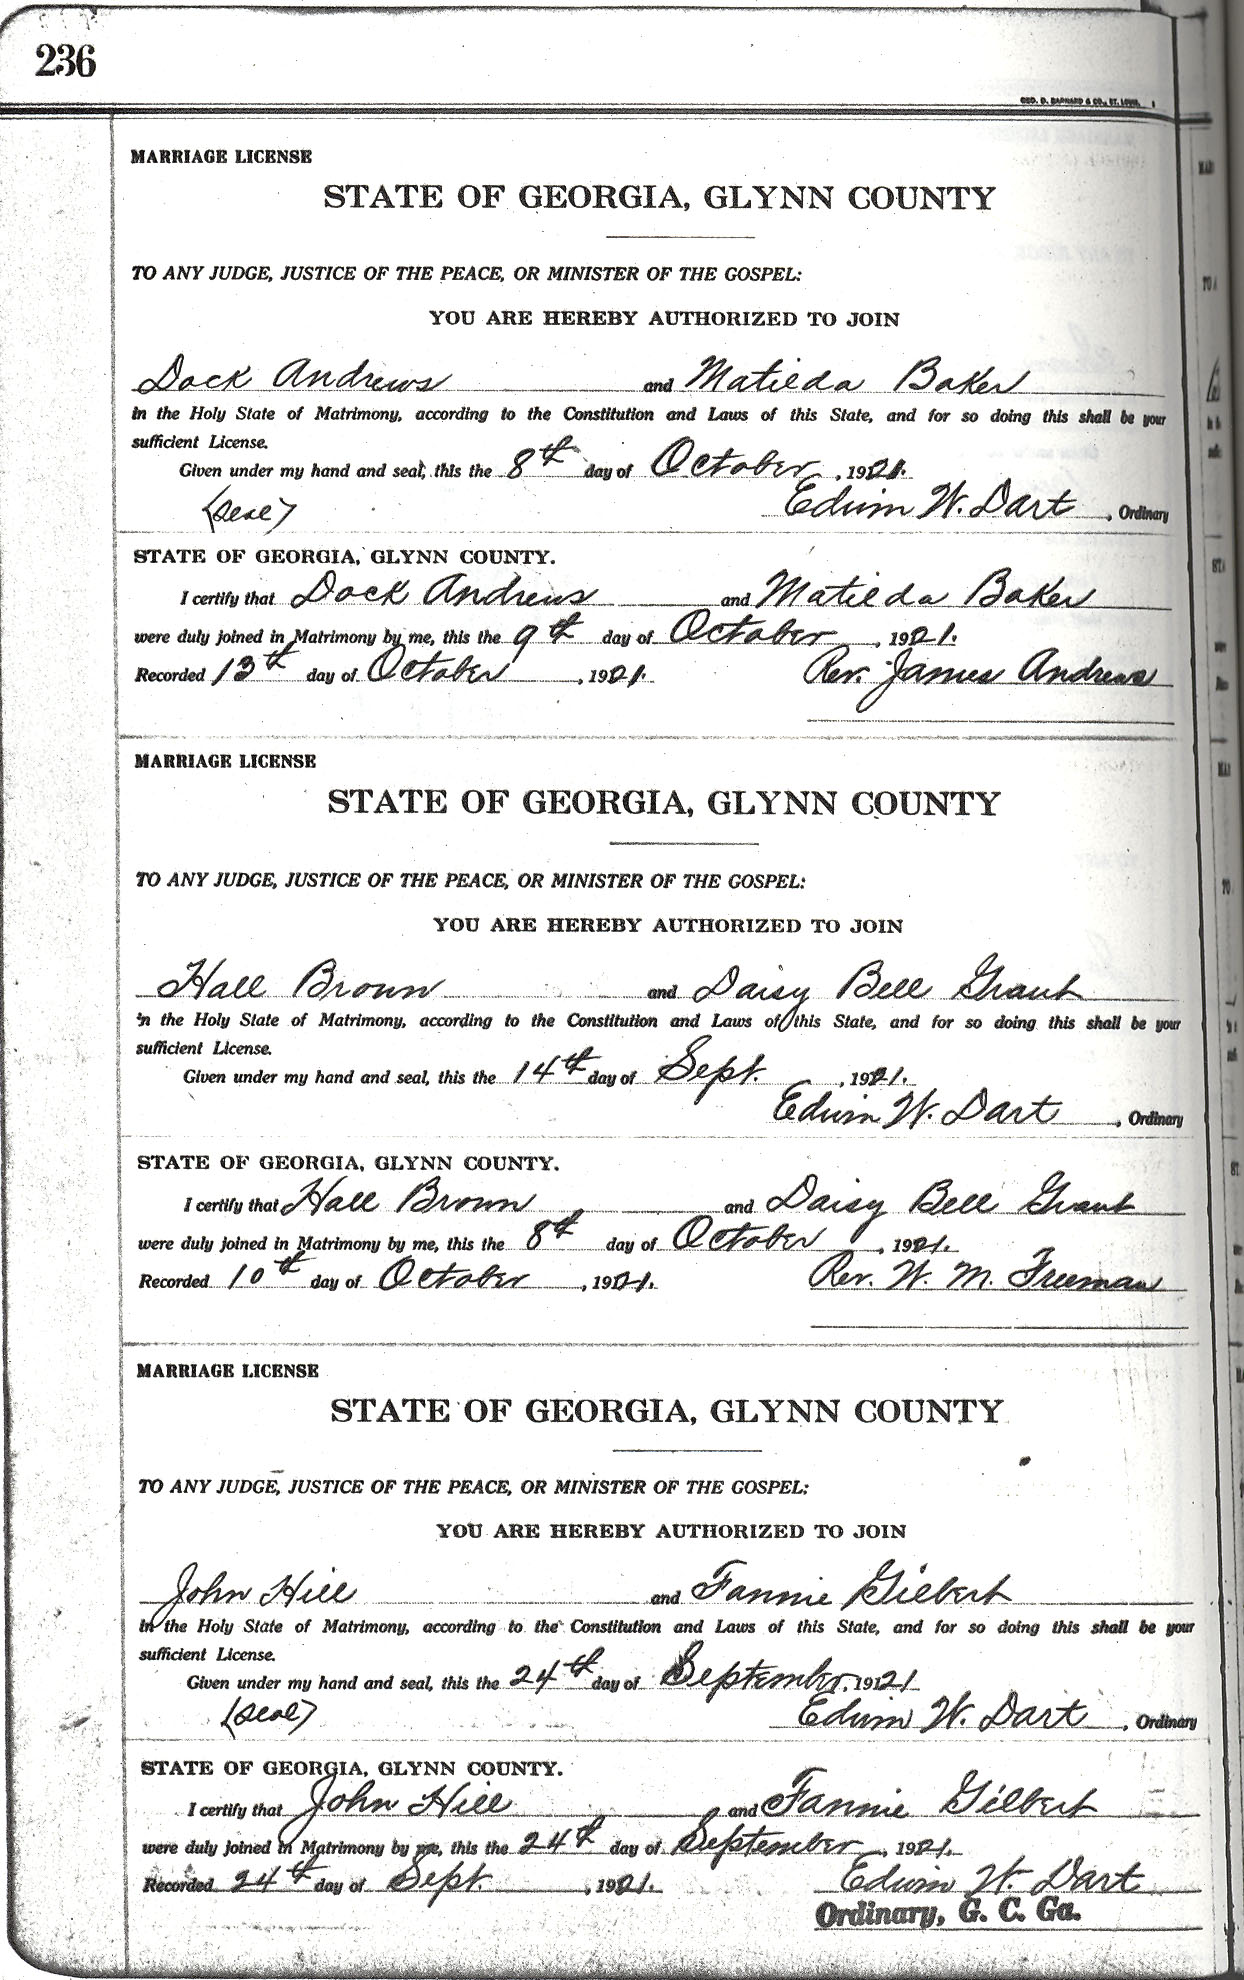 236
GEO. D. BARNARD & CO., ST. LOUIS.
MARRIAGE LICENSE
STATE OF GEORGIA, GLYNN COUNTY
TO ANY JUDGE, JUSTICE OF THE PEACE, OR MINISTER OF THE GOSPEL:
YOU ARE HEREBY AUTHORIZED TO JOIN
Dock Andrews and Matilda Baker
in the Holy State of Matrimony, according to the Constitution and Laws of this State, and for so doing this shall be your
sufficient License.
Given under my hand and seal, this the 8th day of October, 1921.
(seal) Edwin W. Dart, Ordinary
STATE OF GEORGIA, GLYNN COUNTY.
I certify that Dock Andrews and Matilda Baker
were duly joined in Matrimony by me, this the 9th day of October, 1921.
Recorded 13th day of October, 1921. Rev. James Andrews
MARRIAGE LICENSE
STATE OF GEORGIA, GLYNN COUNTY
TO ANY JUDGE, JUSTICE OF THE PEACE, OR MINISTER OF THE GOSPEL:
YOU ARE HEREBY AUTHORIZED TO JOIN
Hall Brown and Daisy Bell Grant
in the Holy State of Matrimony, according to the Constitution and Laws of this State, and for so doing this shall be your
sufficient License.
Given under my hand and seal, this the 14th day of Sept. , 1921.
Edwin W. Dart, Ordinary
STATE OF GEORGIA, GLYNN COUNTY.
I certify that Hall Brown and Daisy Bell Grant
were duly joined in Matrimony by me, this the 8th day of October, 1921.
Recorded 10th day of October, 1921. Rev. W. M. Freeman
MARRIAGE LICENSE
STATE OF GEORGIA, GLYNN COUNTY
TO ANY JUDGE, JUSTICE OF THE PEACE, OR MINISTER OF THE GOSPEL:
YOU ARE HEREBY AUTHORIZED TO JOIN
John Hill and Fannie Gilbert
in the Holy State of Matrimony, according to the Constitution and Laws of this State, and for so doing this shall be your
sufficient License.
Given under my hand and seal, this the 24th day of September, 1921
(seal) Edwin W. Dart, Ordinary
STATE OF GEORGIA, GLYNN COUNTY.
I certify that John Hill and Fannie Gilbert
were duly joined in Matrimony by me, this the 24th day of September, 1921.
Recorded 24th day of Sept. , 1921. Edwin W. Dart
Ordinary, G. C. Ga.